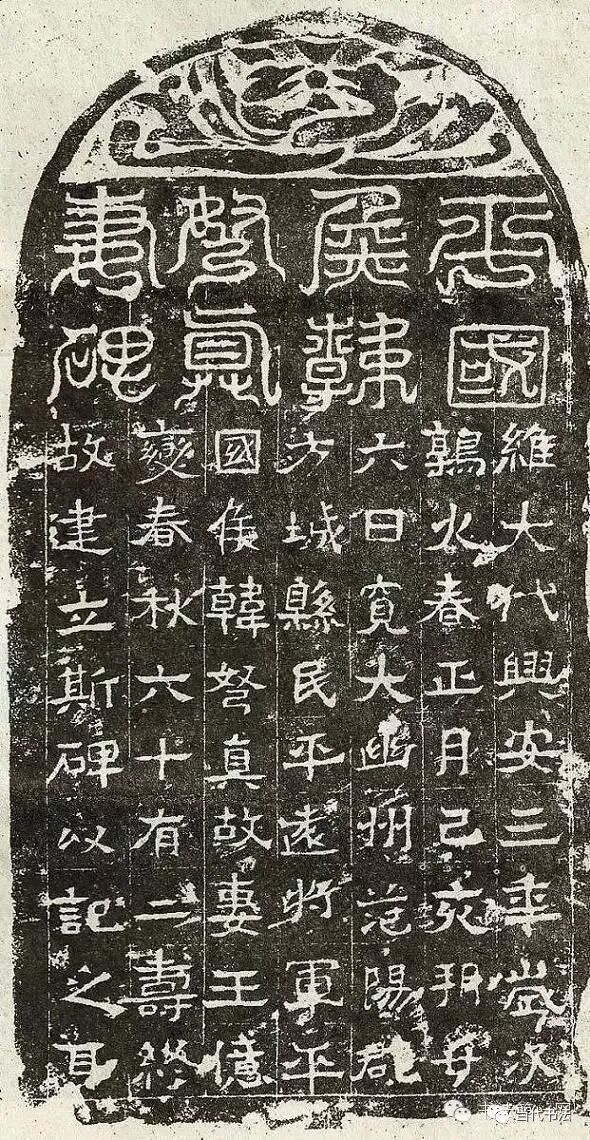 平國
侯韓
弩真
妻碑
維大代興安三年歲次
鶉火春正月己亥朔廿
六日寬大幽州范陽郡
方城縣民平遠將軍平
國侯韓弩真故妻王億
變春秋六十有二壽終
故建立斯碑以記之耳
当代书法